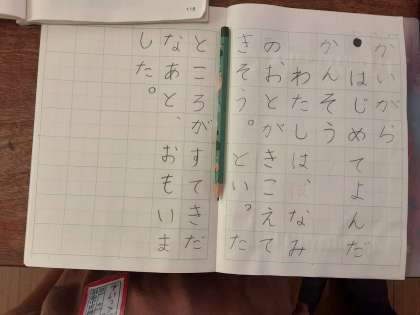 かいがら
はじめてよんだ
かんそう
わたしは、なみ
のおとがきこえて
きそう。といった
ところがすてきだ
なあと、おもいま
した。